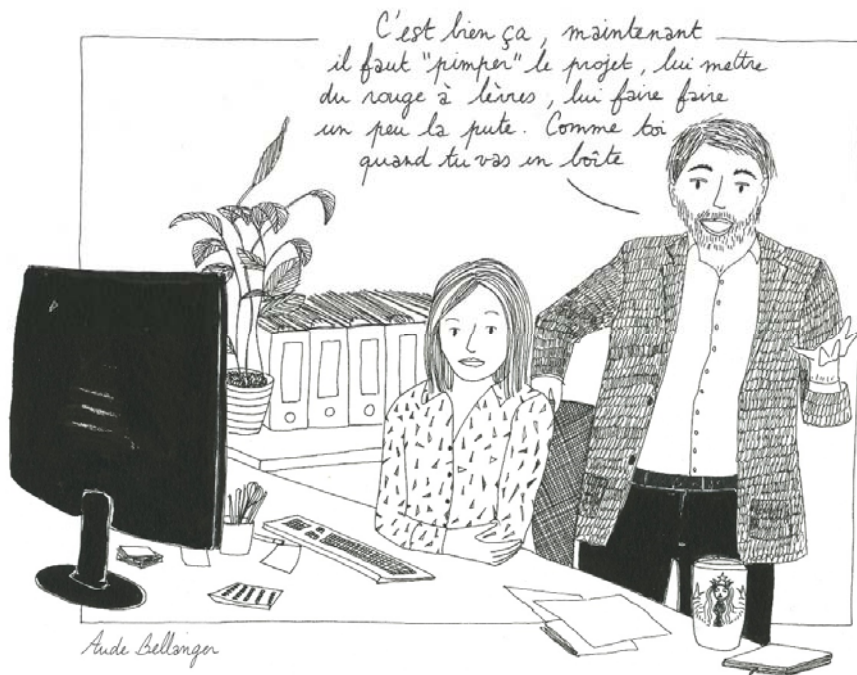 C'est bien ça, maintenant
il faut "pimper" le projet, lui mettre
du rouge à lèvres, lui faire faire
un peu la pute. Comme toi
quand tu vas en boîte
Aude Bellanger